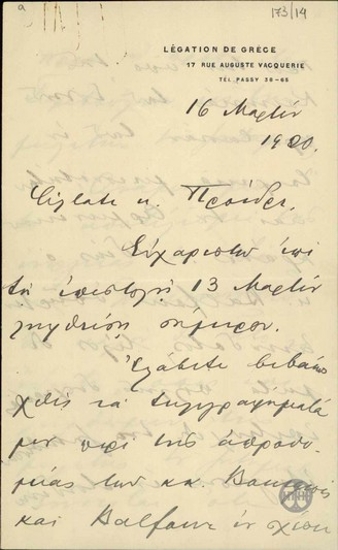 173/14
LÉGATION DE GRÈCE
17 RUE AUGUSTE VACQUERIE
TÉL PASSY 26-65
16 Μαρτίου
1920.
Φίλτατε κ. Πρόεδρε,
Εὐχαριστῶ ἐπὶ
τῇ ἐπιστολῇ 13 Μαρτίου
ληφθείσῃ σήμερον.
Ἐλάβετε βεβαίως
χθὲς τὰ τηλεγραφήματά
μου περὶ τῆς ἀπροθυ-
μίας τῶν κκ.
καὶ Balfour ἐν σχέσει